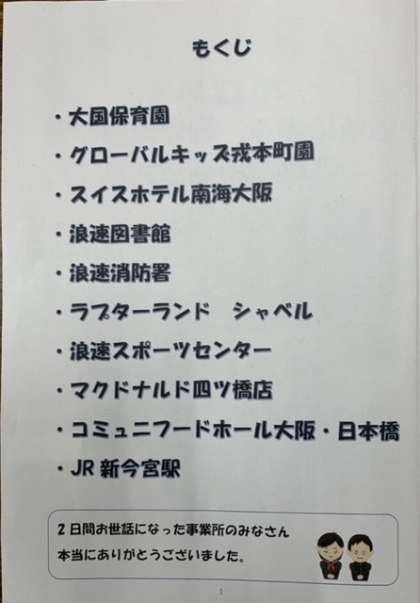 もくじ
・大国保育園
・グローバルキッズ戎本町園
・スイスホテル南海大阪
・浪速図書館
・浪速消防署
・ラプターランド　シャベル
・浪速スポーツセンター
・マクドナルド四ツ橋店
・コミュニフードホール大阪・日本橋
・JR新今宮駅
2日間お世話になった事業所のみなさん
本当にありがとうございました。
1